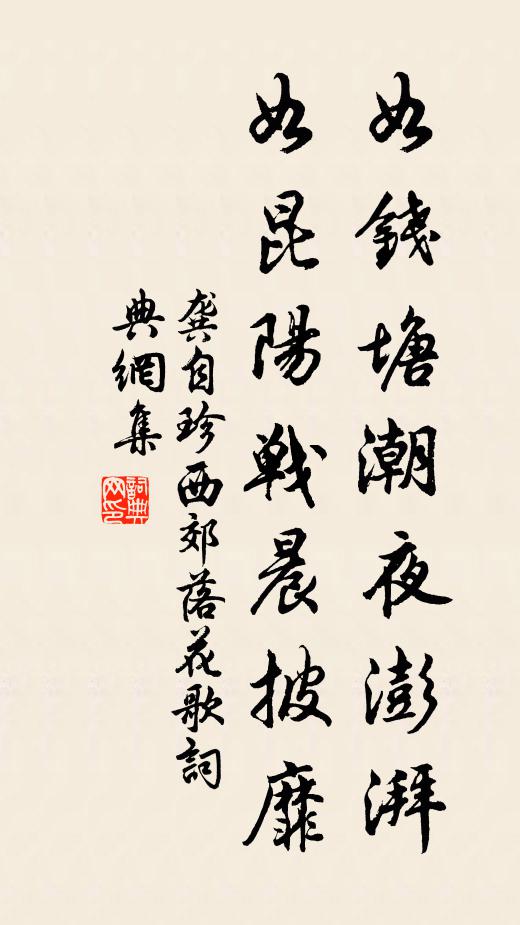 如錢塘潮夜澎湃
如昆陽戰晨披靡
龔自珍西郊落花歌詞
典網集
詞典网印